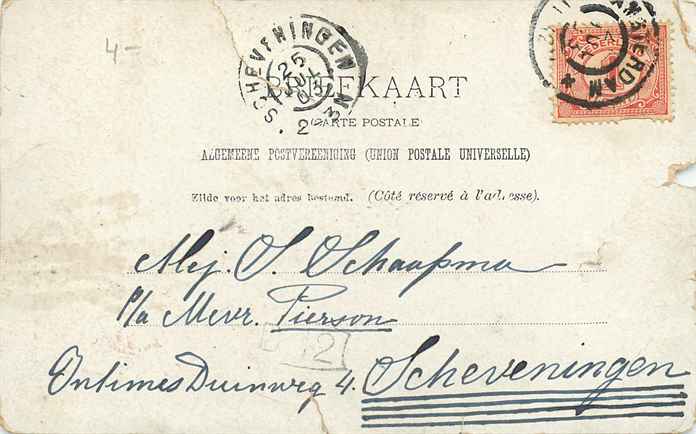 4-
SCHEVENINGEN
25 JUL 03
2
AMSTERDAM
BRIEFKAART
(CARTE POSTALE)
ALGEMEENE POSTVEREENIGING (UNION POSTALE UNIVERSELLE)
Zijde voor het adres bestemd. (Côté réservé à l'adresse).
Mej. S. Schaapma
p/a Mevr. Pierson
Intimes Duinweg 4. Scheveningen